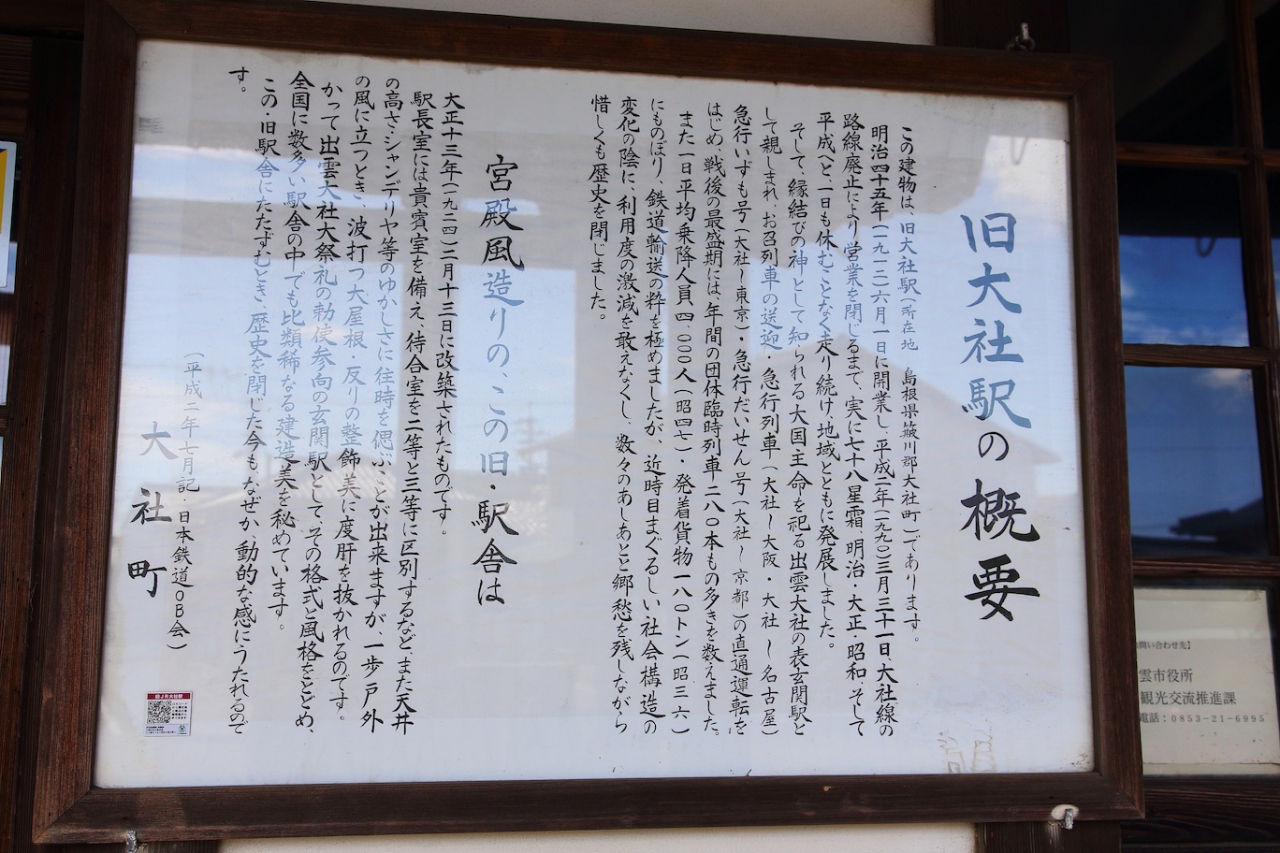 旧大社駅の概要
この建物は、旧大社駅(所在地 島根県簸川郡大社町)であります。
明治四十五年(一九一二)六月一日に開業し、平成二年(一九九〇)三月三十一日、大社線の
路線廃止により営業を閉じるまで、実に七十八星霜、明治・大正・昭和、そして
平成へと、一日も休むことなく走り続け、地域とともに発展しました。
そして、縁結びの神として知られる大国主命を祀る出雲大社の表玄関駅と
して親しまれ、お召列車の送迎、急行列車(大社〜大阪・大社〜名古屋)
急行いずも号(大社〜東京)・急行だいせん号(大社〜京都)の直通運転を
はじめ、戦後の最盛期には、年間の団体臨時列車二八〇本もの多きを数えました。
また一日平均乗降人員、四、〇〇〇人(昭四七)・発着貨物一八〇トン(昭三六)
にものぼり、鉄道輸送の粋を極めましたが、近時目まぐるしい社会構造の
変化の陰に、利用度の激減を敢えなくし、数々のあしあとと郷愁を残しながら
惜しくも歴史を閉じました。
宮殿風造りの、この旧・駅舎は
大正十三年(一九二四)二月十三日に改築されたものです。
駅長室には貴賓室を備え、待合室を二等と三等に区別するなど、また天井
の高さ、シャンデリヤ等のゆかしさに往時を偲ぶことが出来ますが、一歩戸外
の風に立つとき、波打つ大屋根・反りの整飾美に度肝を抜かれるのです。
かって出雲大社大祭礼の勅使参向の玄関駅として、その格式と風格をとどめ、
全国に数多い駅舎の中でも比類稀なる建造美を秘めています。
この・旧駅舎にたたずむとき、歴史を閉じた今も、なぜか、動的な感に、うたれるので
す。
(平成二年七月記 日本鉄道OB会)
大社町
旧JR大社駅
問い合わせ先】
雲市役所
観光交流推進課
電話:0853-21-6995